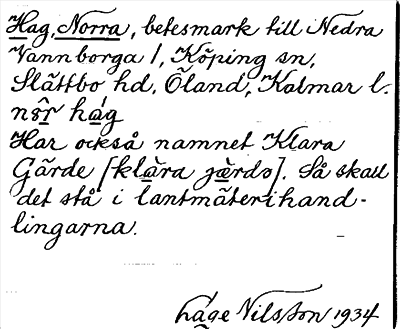 Hag, Norra, betesmark till Nedra
Vannborga 1, Köping sn,
Slättbo hd, Öland, Kalmar l.
nɷr̂ hág
Har också namnet Klara
Gärde [klɑ̀ra jæ̀rdə]. Så skall
det stå i lantmäterihand-
lingarna.
Låge Nilsson 1934